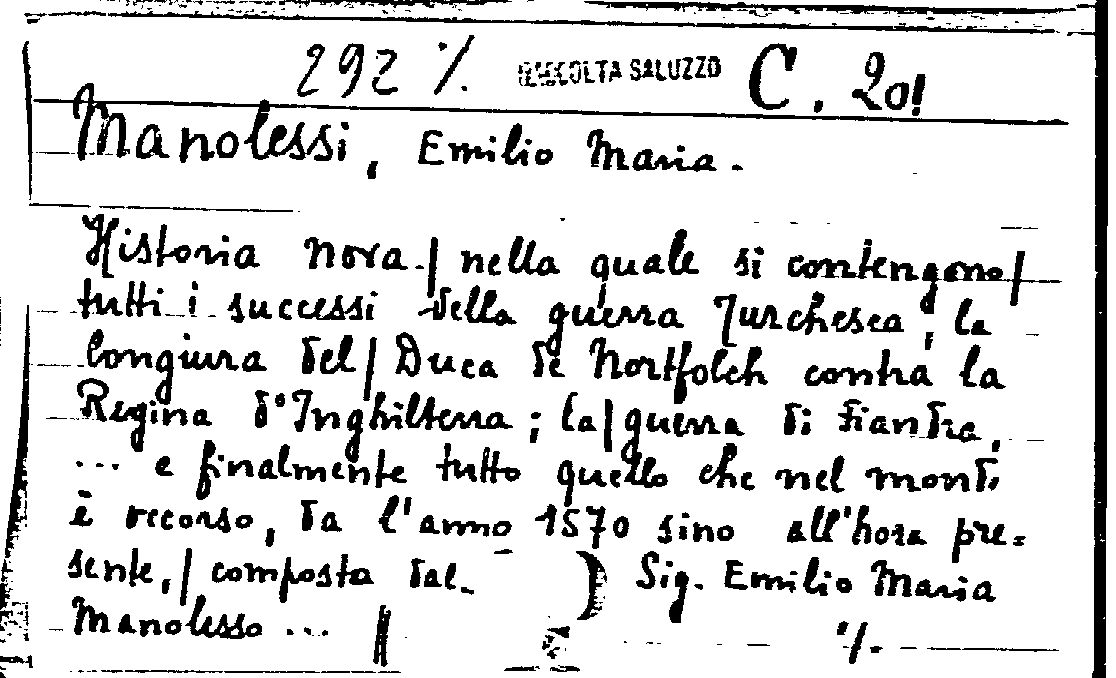 292 ·/. RACCOLTA SALUZZO C. 201
Manolessi, Emilio Maria.
Historia nova./ nella quale si contengono/
tutti i successi della guerra Turchesca, la
Congiura del/ Duca de Nortfolch contra la
Regina d'Inghilterra; la/ guerra di Fiandra,
... e finalmente tutto quello che nel mondo
è occorso, da l'anno 1570 sino all'hora pre=
sente,/ composta dal } Sig. Emilio Maria
Manolesso ... || ·/.